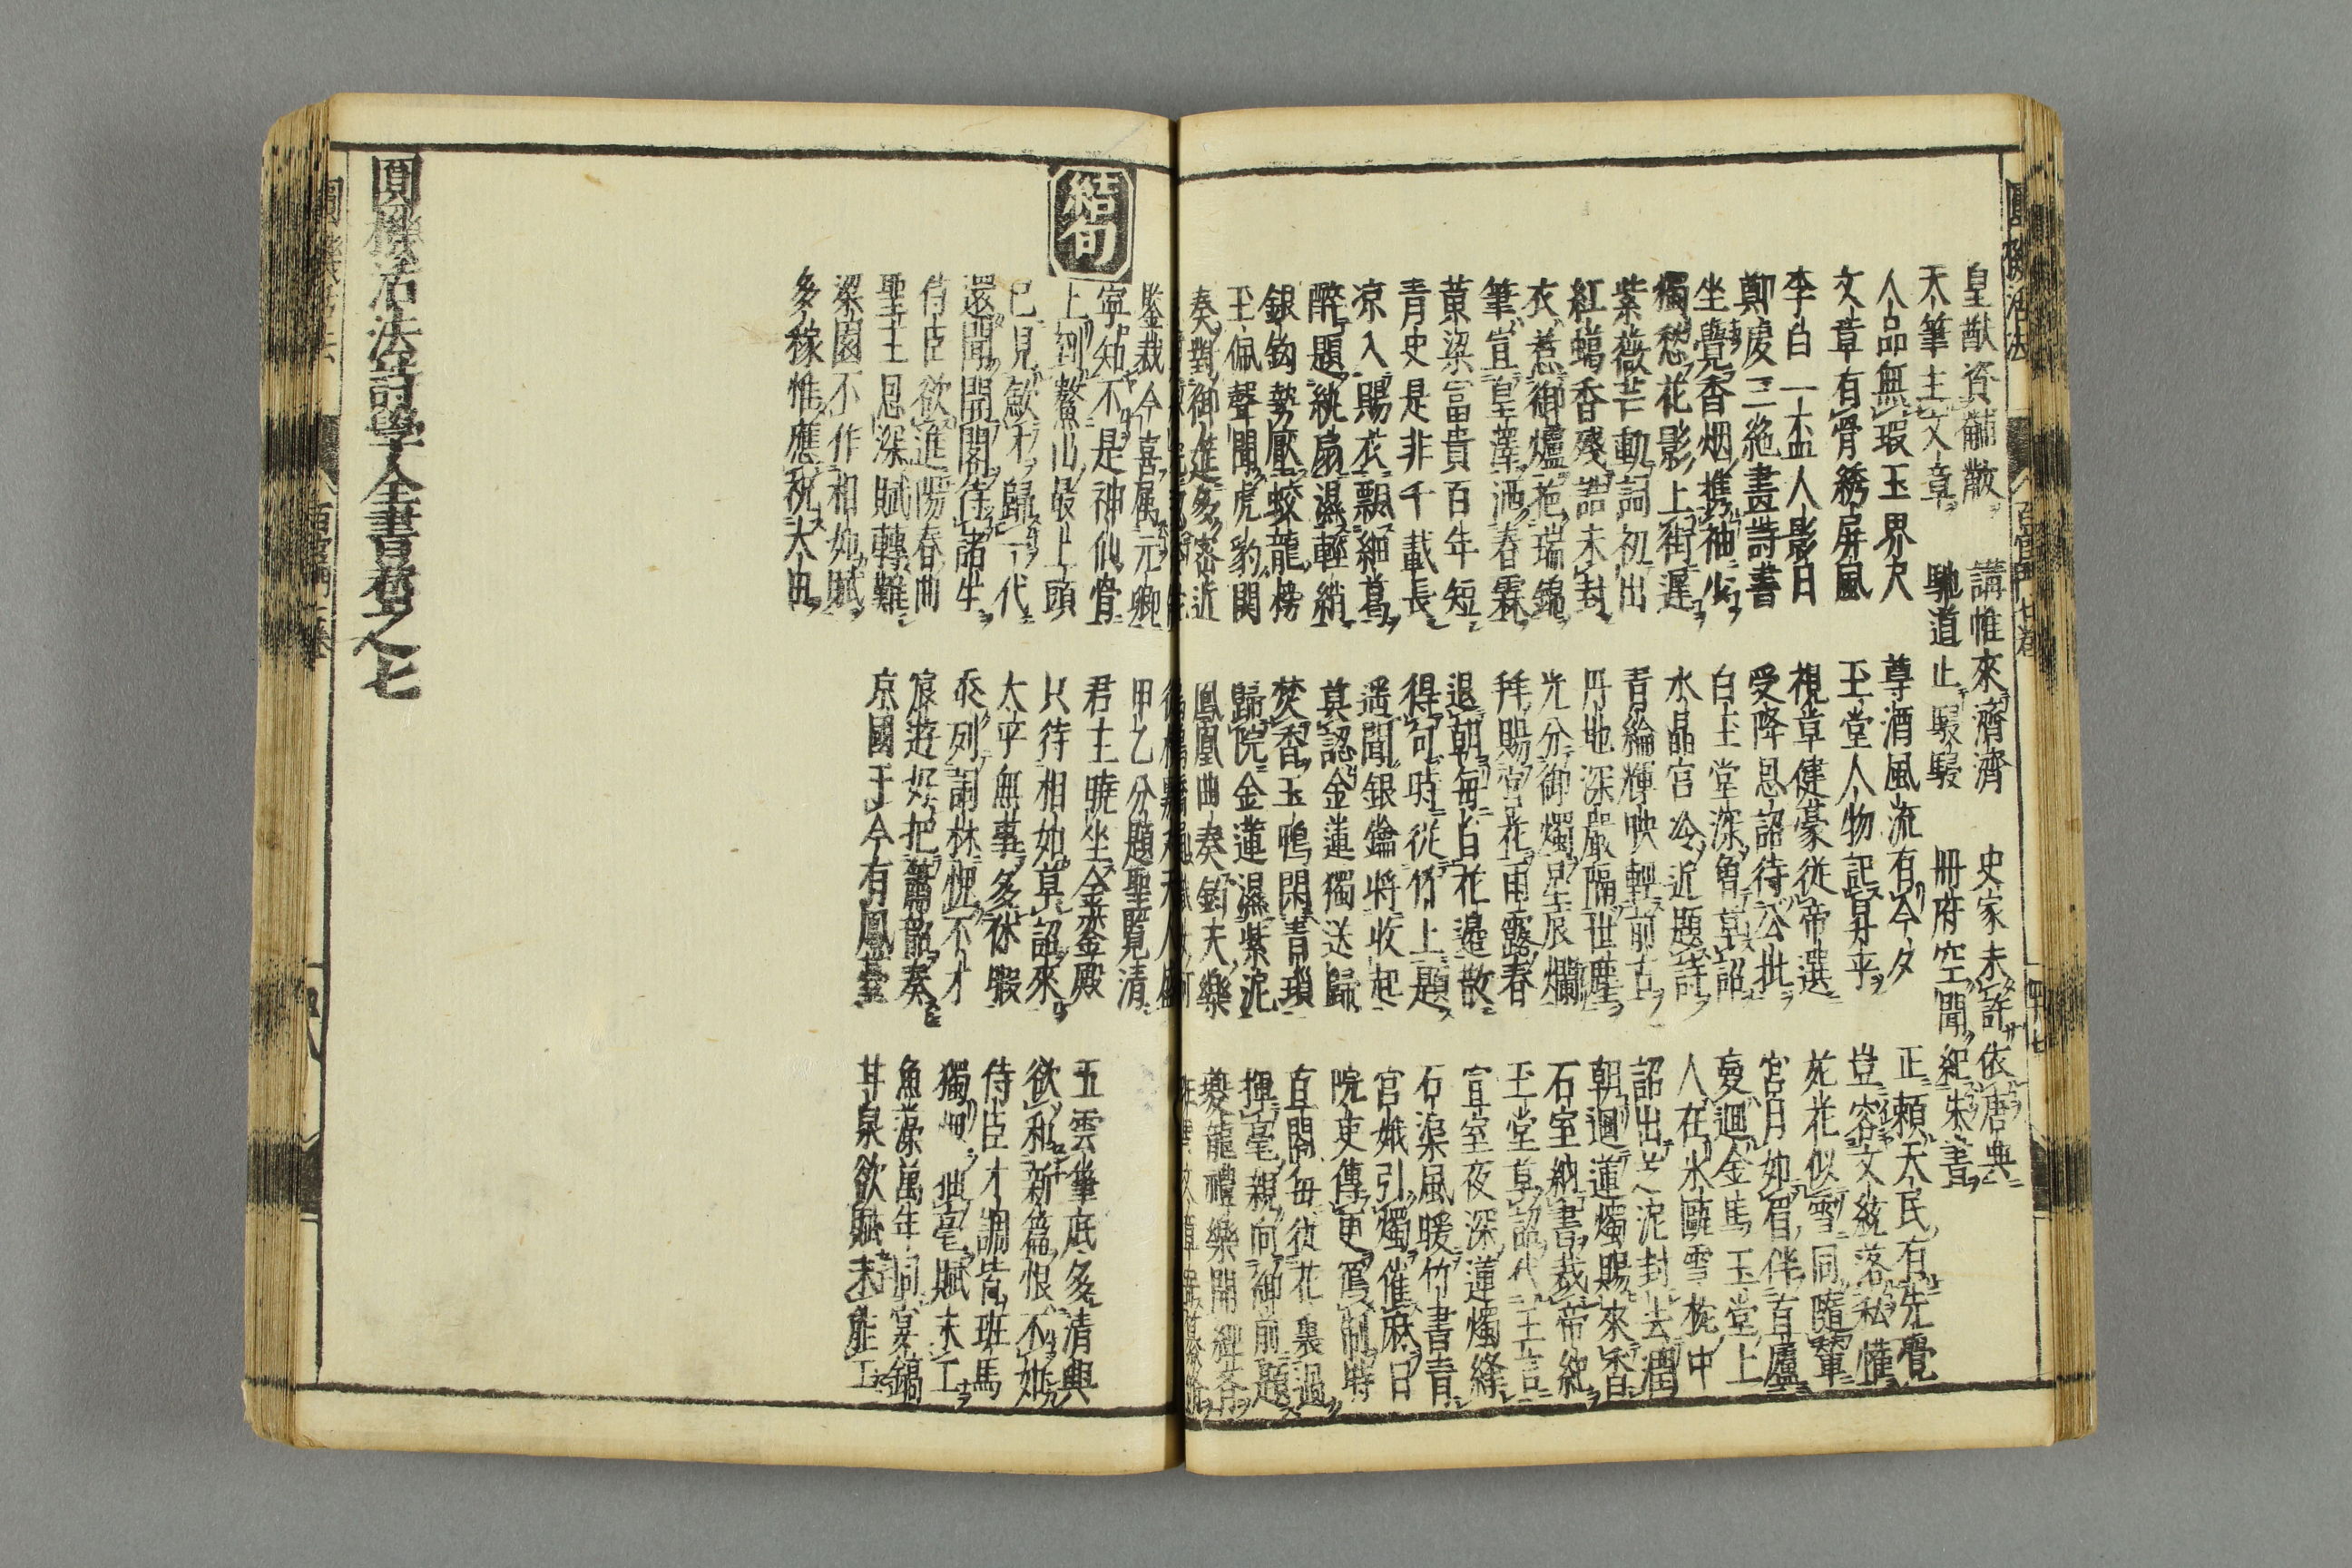 圓機活法 百官門七卷 四十七
皇猷資黼黻 講帷來濟濟 史家未許依唐典
天筆主文章 馳道止駸駸 冊府空聞紀朱書
人品無瑕玉界尺 尊酒風流有今夕 正頼天民有先覺
文章有骨綉屏風 玉堂人物記昇平 豈容文統落私懽
李白一盃人影日 視草健豪從帝選 苑花似雪同隨輦
鄭虔三絶畫詩書 受降恩詔待公批 宮月如眉伴直廬
坐覺香烟携袖少 白玉堂深魯草詔 憂迴金馬玉堂上
獨愁花影上街遲 水晶宮冷近題詩 人在氷甌雪椀中
紫薇芒動詞初出 青綸輝映輕前古 詔出芝泥封去潤
紅蠟香殘誥未封 丹地深嚴隔世塵 朝迴蓮燭賜來香
衣惹御爐葩瑞錦 光分御燭星辰爛 石室納書裁帝紀
筆宣皇澤洒春霖 拜賜宮花雨露春 玉堂草詔代王言
黄梁富貴百年短 退朝毎自花邉散 宣室夜深蓮燭絳
青史是非千載長 得句時從竹上題 石渠風暖竹書青
凉入賜衣飄細葛 遥聞銀鑰將收起 官娥引燭催麻日
醉題紈扇濕輕綃 莫認金蓮獨送歸 院吏傳更寫制時
銀鈎勢壓蛟龍榜 焚香玉鴨閑青瑣 直閣毎從花裏過
玉佩聲聞虎豹関 歸院金蓮濕紫泥 揮毫親向御前題
奏對御進多密近 鳳凰曲奏鈞天樂 夔龍禮樂開
鑒裁今喜属元卿 甲乙分題聖覽清
結句
寧知不是神仙骨 君主曉坐金鑾殿 五雲筆底多清興
上到鰲山最上頭 只待相如草詔來 欲和新篇恨不如
已見斂才歸一代 太平無事多休暇 侍臣才調皆班馬
還聞開閣待諸生 忝列詞林愧不才 獨 抽毫賦未工
侍臣欲進陽春曲 宸遊好把簫韶奏 魚藻萬年同宴鎬
聖主恩深賦轉難 京國于今有鳳臺 甘泉欲賦未能工
梁園不作相如賦
多稼惟應祝大田
圓機活法詩學全書卷之七